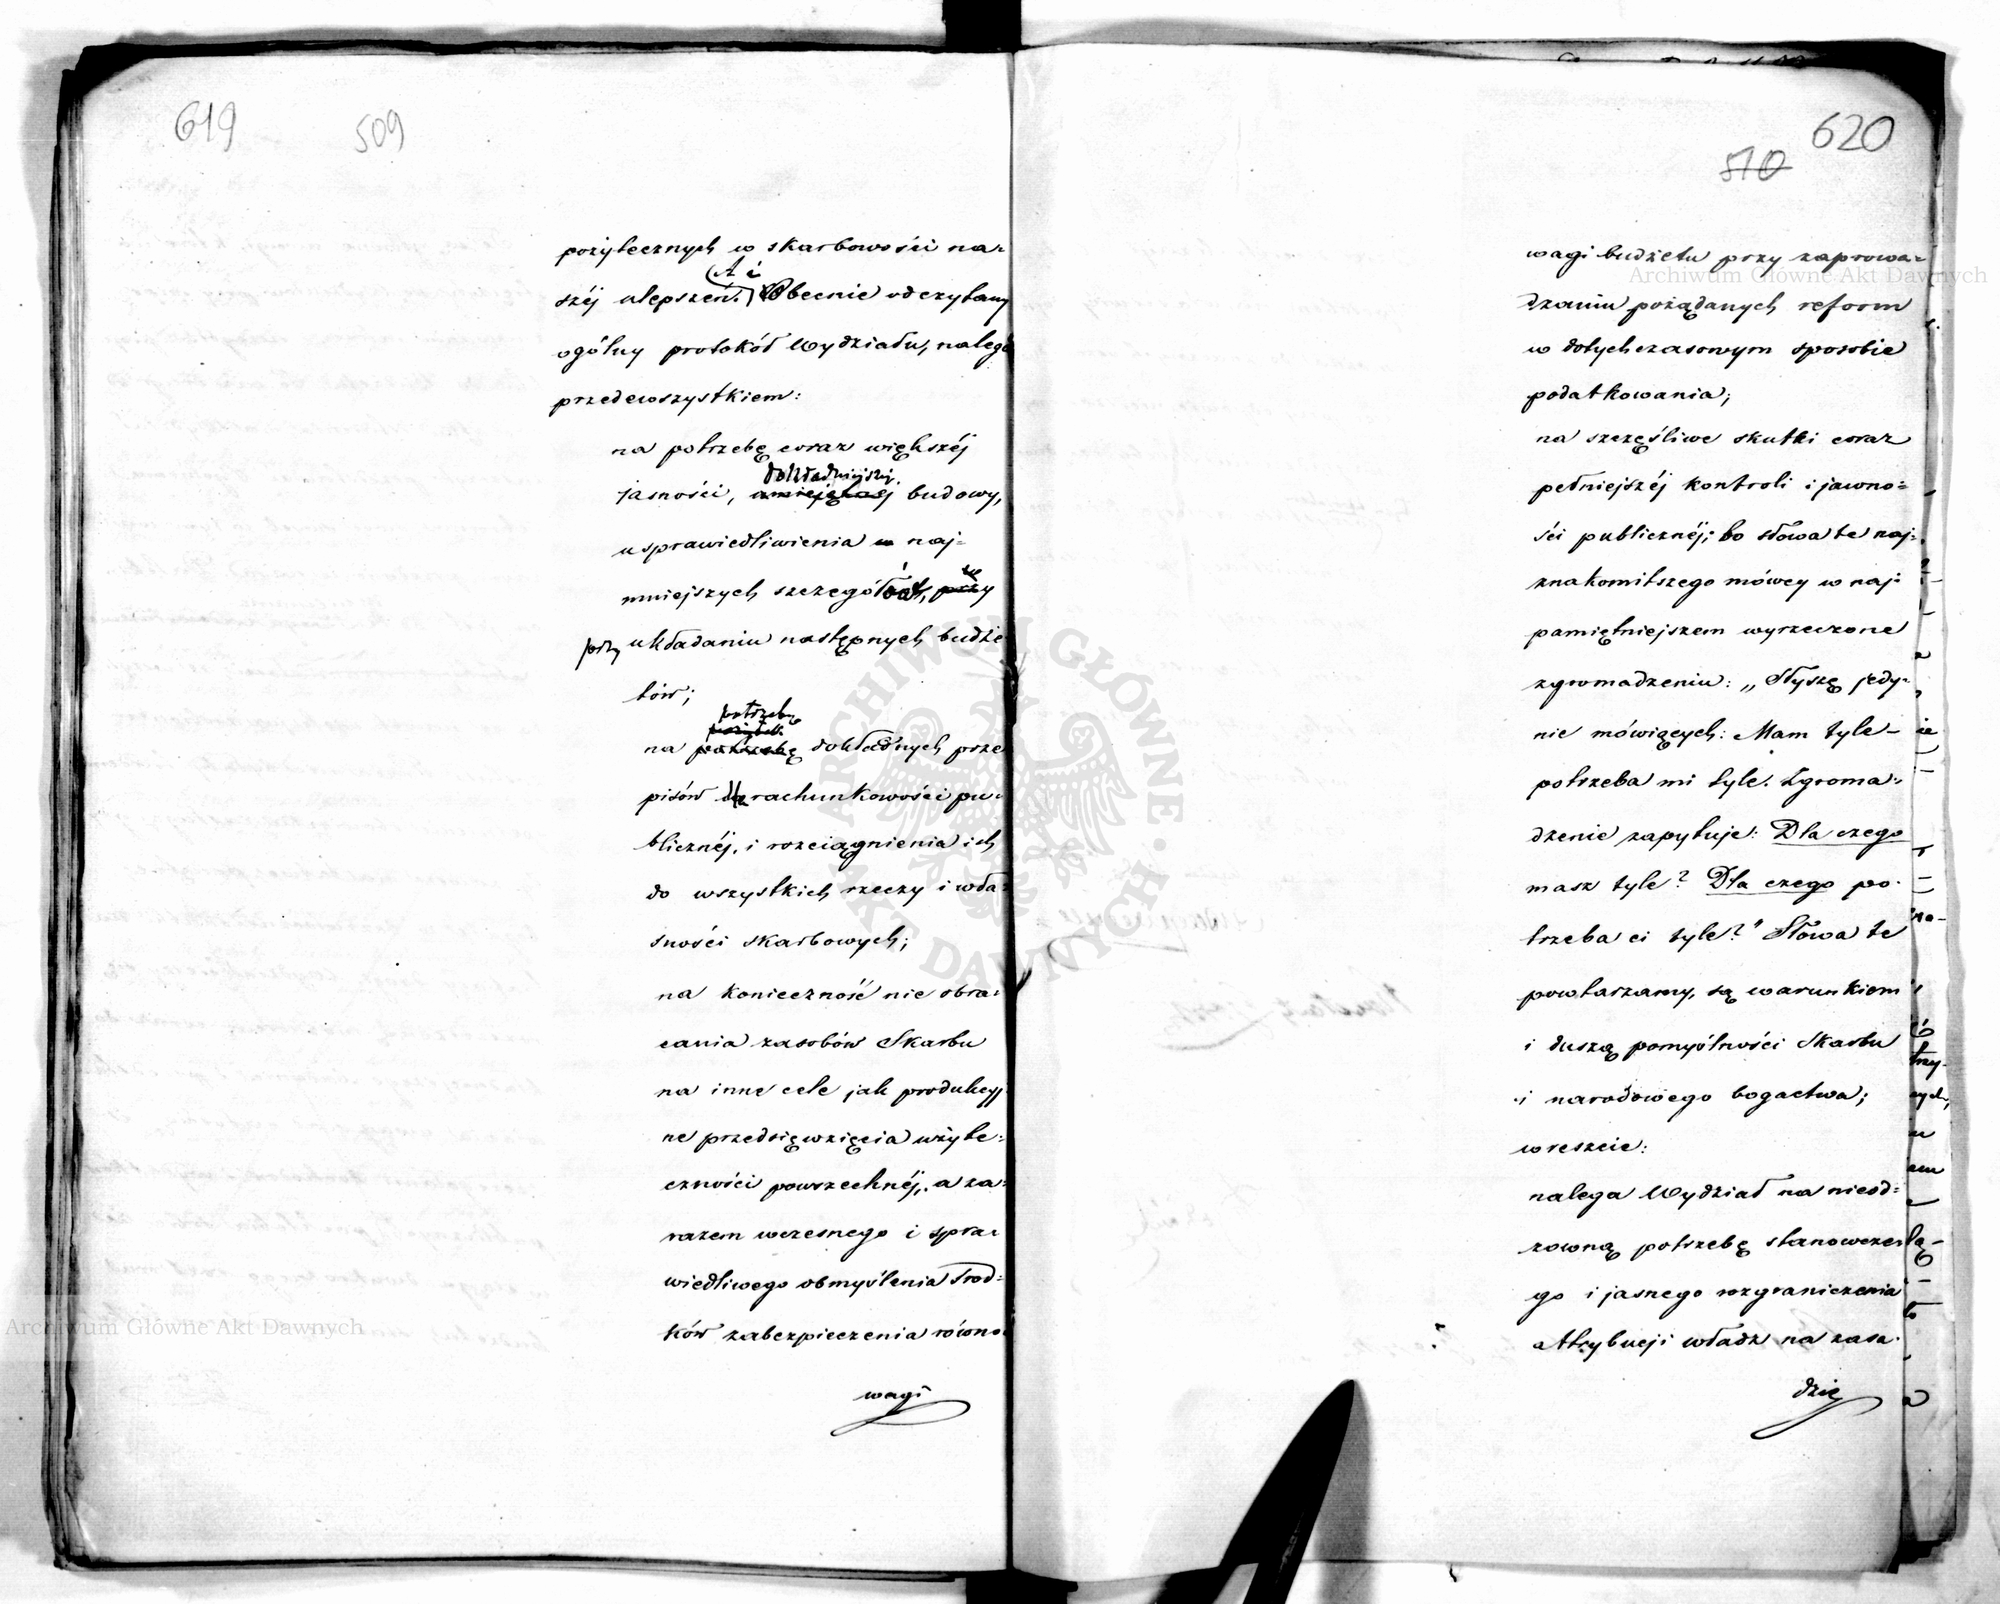 619 509
pożytecznych w skarbowości na-
A i
széj ulepszeń. Obecnie odczytany
ogólny protokół Wydziału, nalega
przedewszystkiem:
na potrzebę coraz większéj
dokładniejszéj
jasności, umiejętnej budowy,
usprawiedliwienia w naj-
mniejszych szczegółach, przy
przy układaniu następnych budże
tów;
potrzebę
na potrzebę dokładnych prze
pisów rachunkowości pu-
blicznéj, i rozciągnienia ich
do wszystkich rzeczy i wła-
sności skarbowych;
na konieczność nie obra-
cania zasobów Skarbu
na inne cele jak produkcyj
ne przedsięwzięcia użyte-
czności powszechnéj, a za-
razem wczesnego i spra-
wiedliwego obmyślenia środ-
ków zabezpieczenia równo-
wagi
620
510
wagi budżetu przy zaprowa-
dzaniu pożądanych reform
w dotychczasowym sposobie
podatkowania;
na szczęśliwe skutki coraz
pełniejszéj kontroli i jawno-
ści publicznéj; bo słowa te naj-
znakomitszego mówcy w naj-
pamiętniejszem wyrzeczone
zgromadzeniu: „Słyszę jedy-
nie mówiących: Mam tyle –
potrzeba mi tyle. Zgroma-
dzenie zapytuje: Dla czego
masz tyle? Dla czego po-
trzeba ci tyle?" Słowa te
powtarzamy, są warunkiem
i duszą pomyślności Skarbu
i narodowego bogactwa;
wreszcie:
nalega Wydział na nieod-
zowną potrzebę stanowcze
go i jasnego rozgraniczenia
Atrybucji władz na zasa-
dzie
Archiwum Główne Akt Dawnych
Archiwum Główne Akt Dawnych
ARCHIWUM GŁÓWNE AKT DAWNYCH